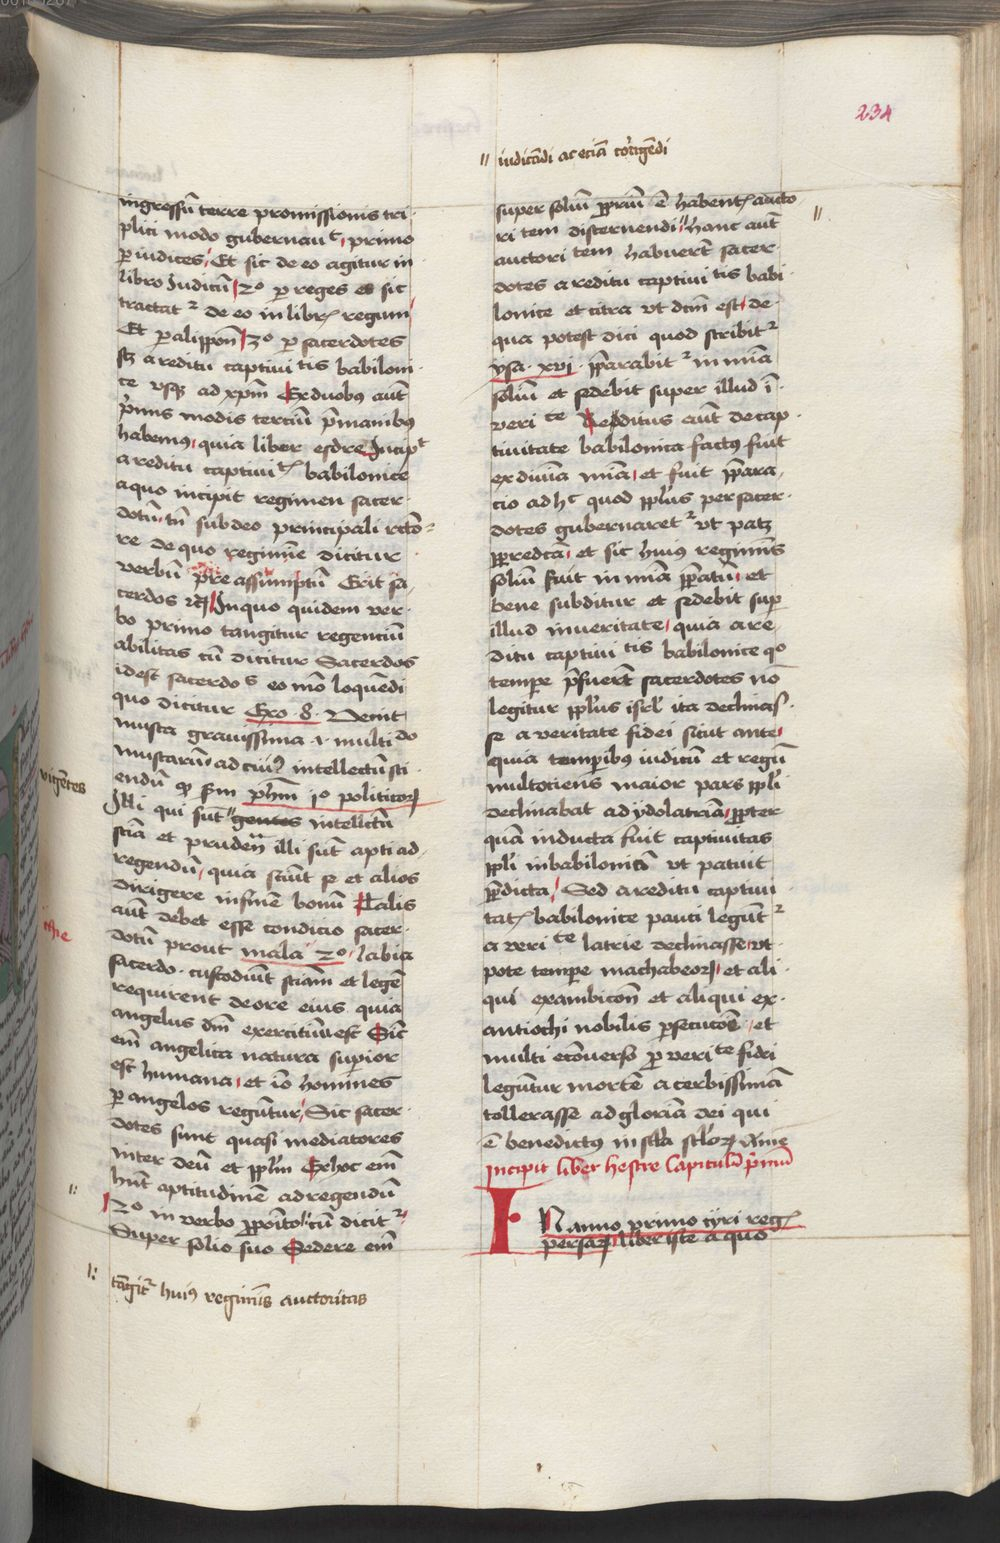 234
iudicādi ac eciā corrigēdi
ingressū terre promissionis tri
plici modo gubernau t primo
per iudices Et sic de eo agitur in
libro Judicū 2º per reges et sic
tractat² de eo in libris regum
Et paralippon 3º per sacerdotes
a reditu captiui tis babiloni
ce vsque ad xpm Ex duobus aūt
primis modis terciū pre manibus
habemus quia liber esdre Incipit
a reditu captiui babilonice
a quo incipit regimen sacer
dotū tn̄ sub deo principali recto
re de quo regimīe dicitur
verbū pre assumptū Erit sa
cerdos In quo quidem ver
bo primo tangitur regenciū
abilitas cū dicitur Sacerdos
idest sacerdo s eo mō loquēdi
quo dicitur Exo 8 Venit
musca grauissima multi do
muscarum ad cuius intellectū sci
endū phm 1º politicorum
vigētes
Illi qui sūt gentes intellectu
sciā et pruden illi sūt apti ad
regendū quia sciūt se et alios
dirigere in finē bonū Talis
aūt debet esse condicio sacer
dotū prout mala 2º labia
sacerdo custodiūt sciam et legē
requirent de ore eius quia
angelus dm̄ exercituū est Sicut
em̄ angelica natura superior
est humana et iō homines
per angelos regūtur Sic sacer
dotes sunt quasi mediatores
inter deū et pplm̄ Ex hoc em̄
hn̄t aptitudinē ad regendū
2º in verbo proposito cū dicit²
Super solio suo Sedere em̄
tāgit² huius regiminis auctoritas
super soliū propriū ē habentis aucto
ri tem discernendi hanc aūt
auctori tem habuerūt sacer
dotes a reditu captiui tis babi
lonice et citra vt dcm̄ est de
qua potest dici quod scribit²
ysa xvi preparabit² in mīa
soliū et sedebit super illud ī
veri te Redditus aūt de cap
tiuitate babilonica factus fuit
ex diuina mīa et fuit prepara
cio ad hc quod pplus per sacer
dotes gubernaret² vt patz
per predcā et sic huius regiminis
soliū fuit in mīa preparatū et
bene subditur et sedebit super
illud in veritate quia a re
ditu captiui tis babilonice qº
tempore prefuerūt sacerdotes nō
legitur pplus isrl ita declinas
se a veritate fidei sicut ante
quia temporibus iudicū et regū
multociens maior pars ppli
declinabat ad ydolatriā propter
quam inducta fuit captiuitas
ppli in babilonicā vt patuit
predicta Sed a reditu captiui
tatis babilonice pauci legūt²
a veri te latrie declinasse vt
pote tempore machabeorum et ali
qui ex ambicōn et aliqui ex
antiochi nobilis persecucōe et
multi ecōuerso pro veri te fidei
legūtur mortē acerbissimā
tollerasse ad gloriā dei qui
ē benedictus in scla sclorum Amē
Incipit liber hestre Capitulū primū
IN anno primo cyri regis
persarum liber iste a quo